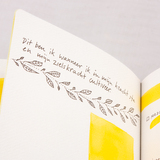 Dit ben ik wanneer ik in mijn kracht sta
en mijn zielskracht activeer